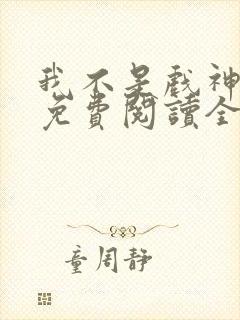 我不是戲神
免費閱讀全
童周靜